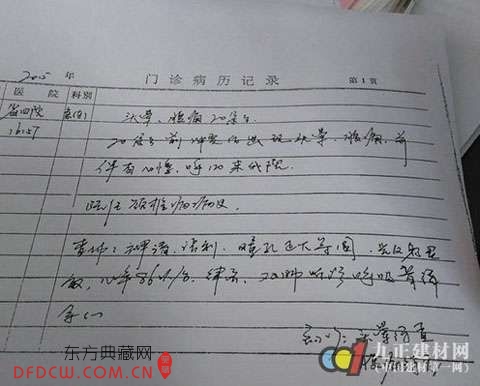 2015 年
门诊病历记录
第1页
医 院 科别
省四院 急(内)
16:57
头晕、腹痛20余分
20余分前 出现头晕、腹痛、
伴有心慌,呼120来我院
既往颈椎病病史
查体:神清,语利,瞳孔正大等圆,光反射灵
敏,心率86次/分,律齐,双肺听诊呼吸音清
余(-)
初步:头晕待查
东方典藏网
DFDCW.COM.CN
九正建材网
(中国建材第一网)